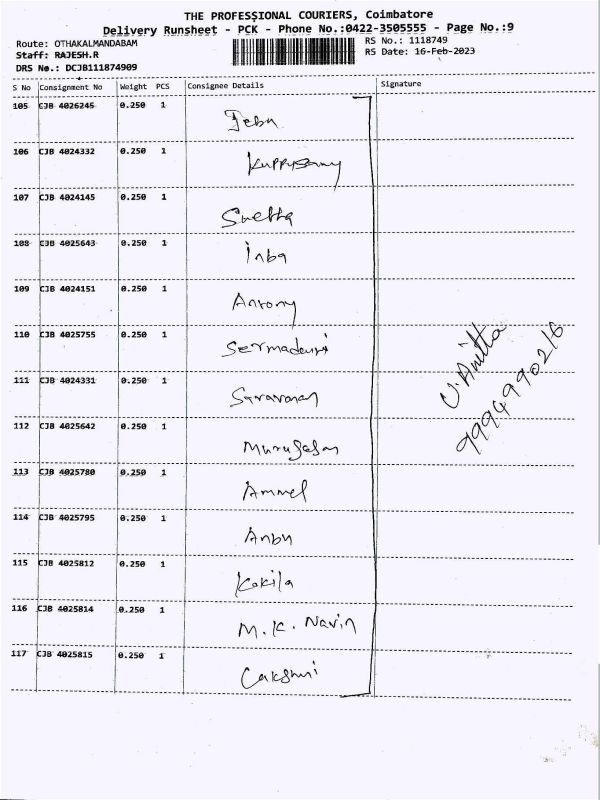 THE PROFESSIONAL COURIERS, Coimbatore
Delivery Runsheet - PCK - Phone No.:0422-3505555 - Page No.:9
Route: OTHAKALMANDABAM
Staff: RAJESH.R
DRS No.: DCJB111874909
RS No.: 1118749
RS Date: 16-Feb-2023
S No Consignment No Weight PCS Consignee Details Signature
105 CJB 4026245 0.250 1 Jebu
106 CJB 4024332 0.250 1 Kuppusamy
107 CJB 4024145 0.250 1 Snetha
108 CJB 4025643 0.250 1 Inba
109 CJB 4024151 0.250 1 Antony
110 CJB 4025755 0.250 1 Sermadevi
111 CJB 4024331 0.250 1 Saravanan
112 CJB 4025642 0.250 1 Murugesan
113 CJB 4025780 0.250 1 Ammel
114 CJB 4025795 0.250 1 Anbu
115 CJB 4025812 0.250 1 Kokila
116 CJB 4025814 0.250 1 M.K. Navin
117 CJB 4025815 0.250 1 Lakshmi
V. Anitha
9994990216